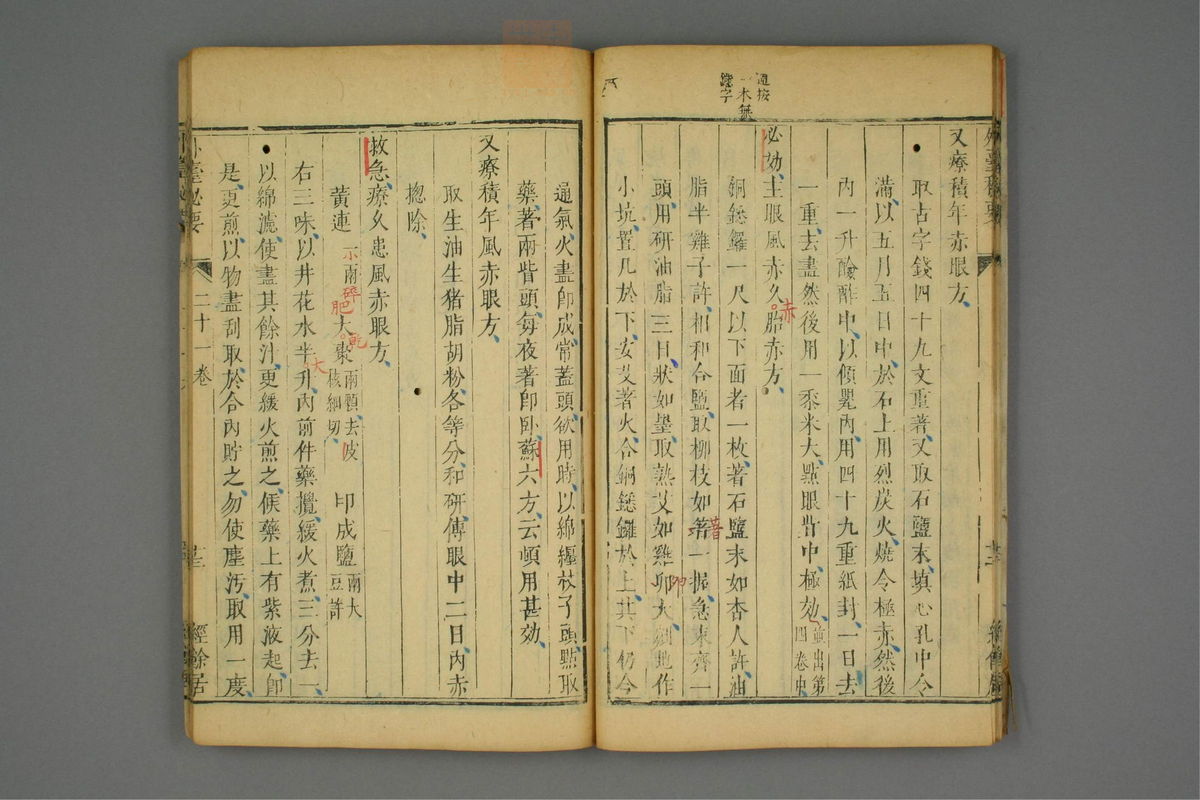 又療積年赤眼方
取古字錢四十九文重著又取石鹽末填心孔中令
滿以五月五日中於石上用烈炭火燒令極赤然後
內一升醶酢中以傾甖內用四十九重紙封一日去
一重去盡然後用一黍米大點眼眥中極効並出第四卷中
必効主眼風赤久胎赤方
赤
銅鎴鑼一尺以下面者一枚著石鹽末如杏人許油
脂半雞子許相和合鹽取柳枝如箸一握急束齊一
著
頭用研油脂三日狀如墨取熟艾如雞卵大地作
小坑置瓦於下安艾著火合銅鎴鑼於上其下仍令
一本無
鎴字
通氣火盡即成常蓋頭欲用時以綿纏杖子頭點取
藥著兩眥頭每夜著即臥蘇六方云頓用甚効
又療積年風赤眼方
取生油生猪脂胡粉各等分和研傅眼中二日內赤
揔除
救急療久患風赤眼方
黃連一兩碎 大棗一顆去皮核細切 印成鹽兩大豆許
肥
乾
右三味以井花水半升內前件藥攪緩火煮三分去一
大
以綿濾使盡其餘汁更緩火煎之候藥上有紫液起即
是更煎以物盡刮取於合內貯之勿使塵汚取用一度
外臺秘要
二十一卷
經餘居